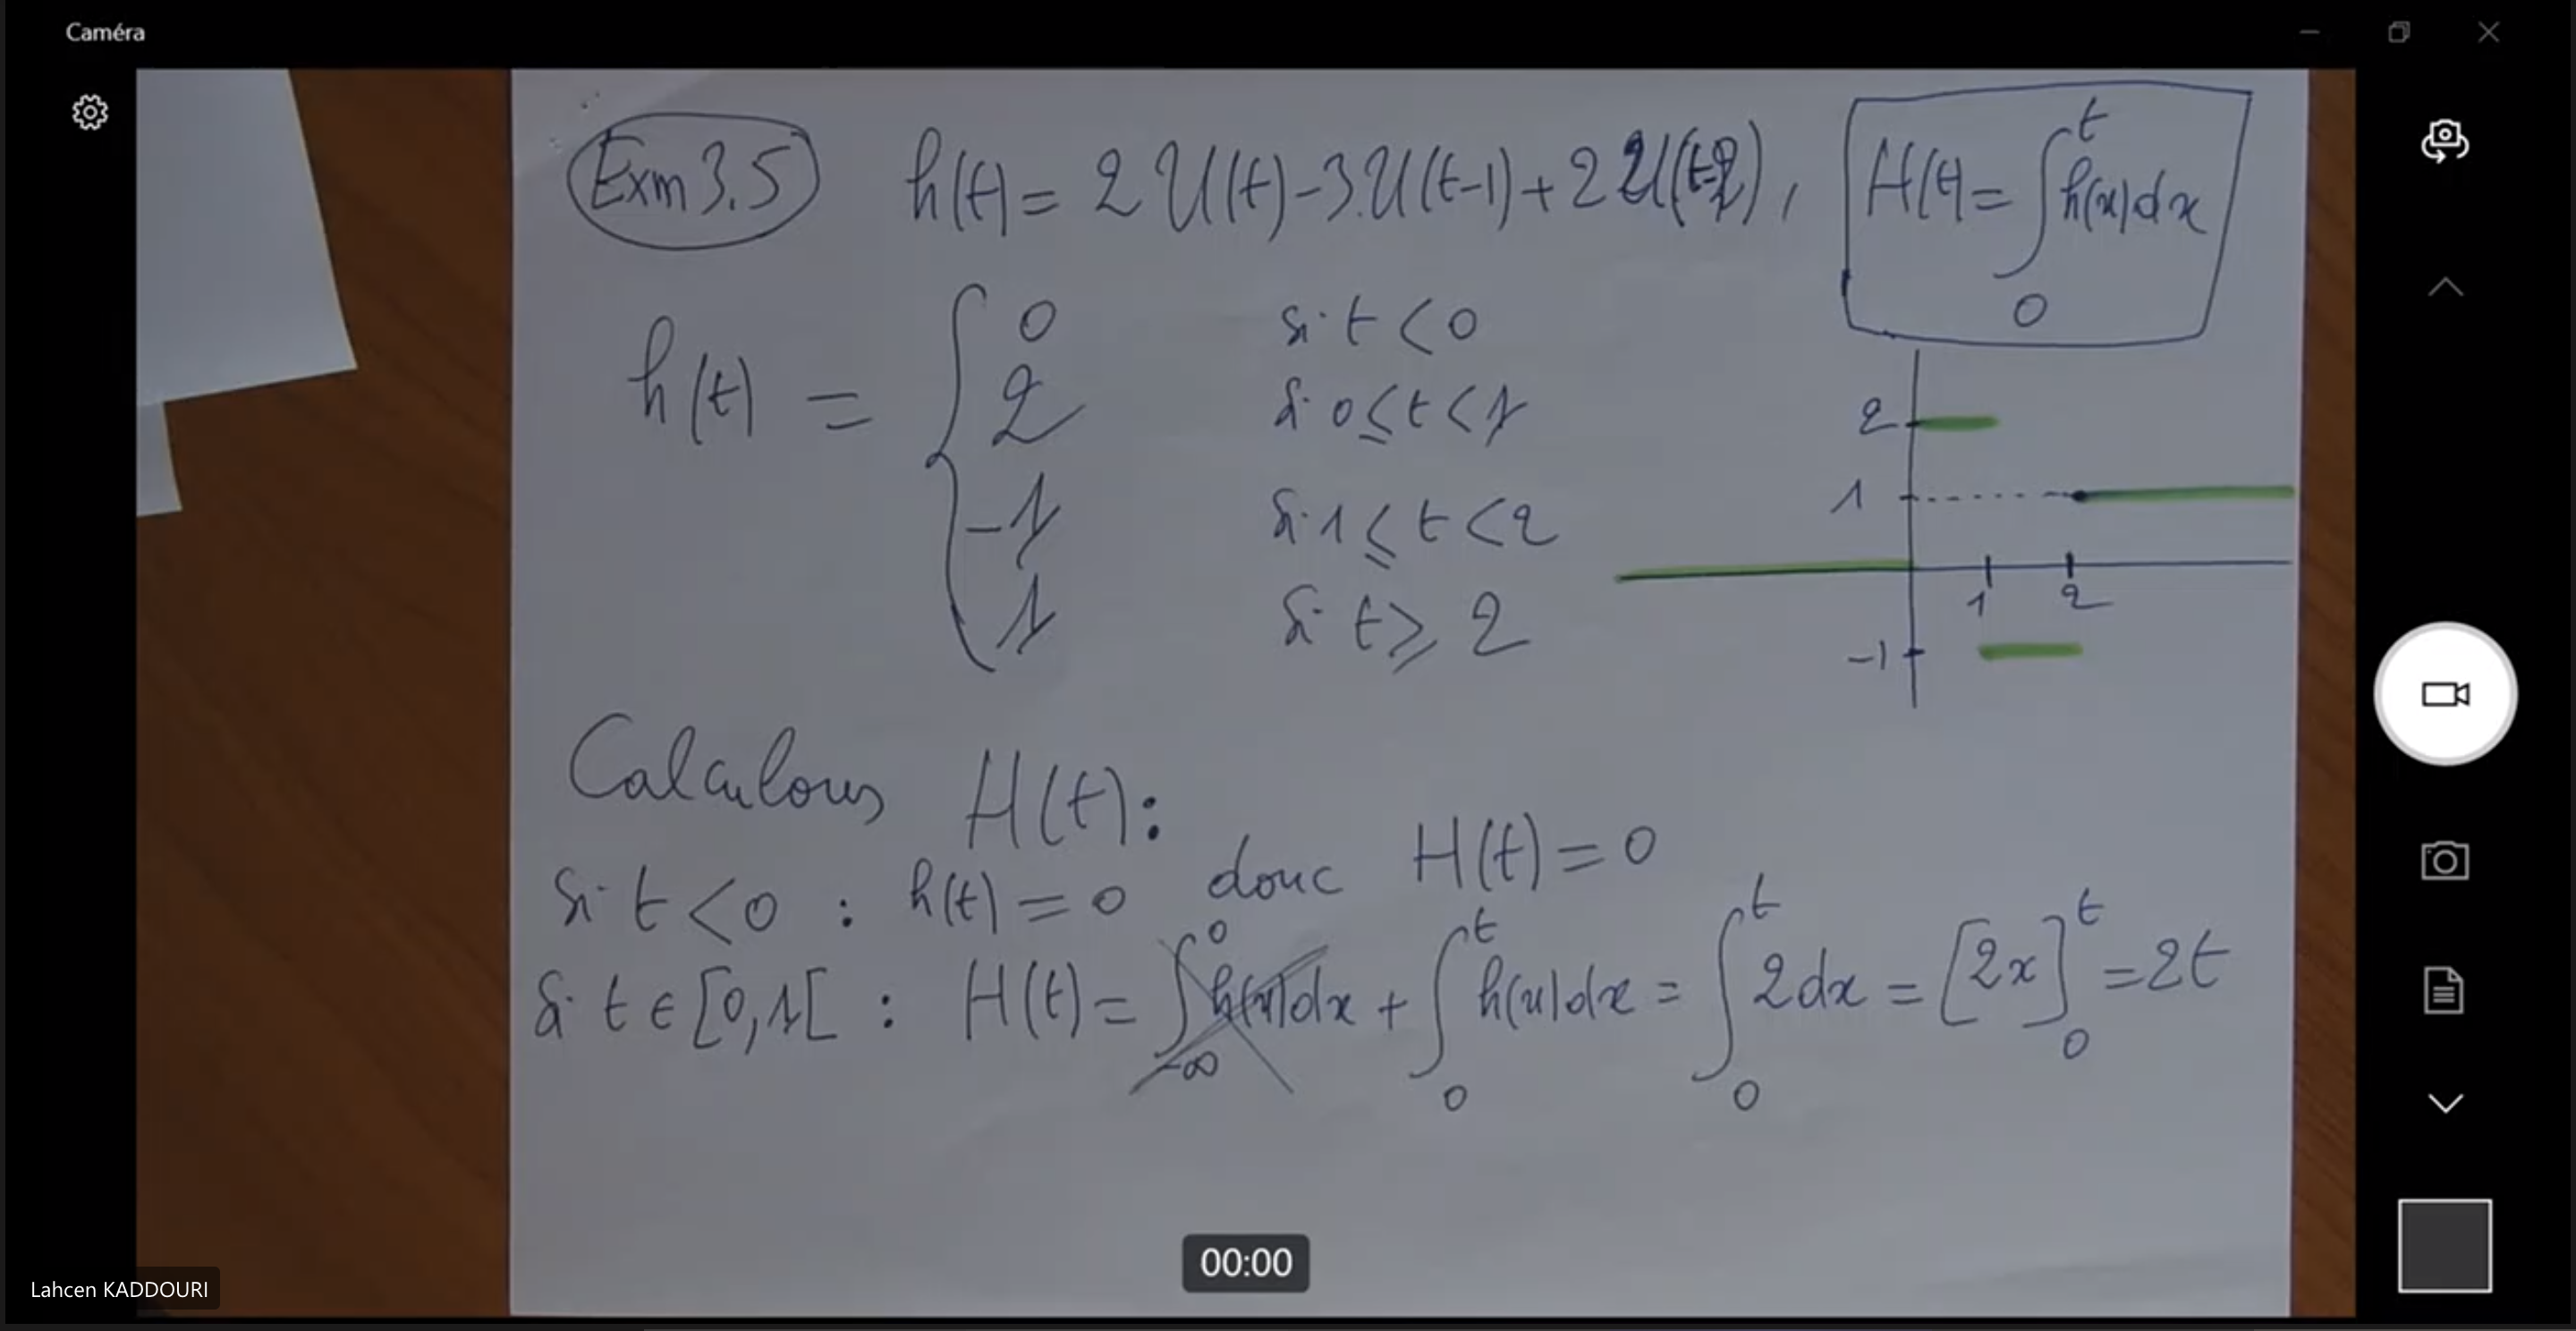 Caméra
Exm 3.5 h(t) = 2 U(t) - 3.U(t-1) + 2 U(t-2), H(t) = ∫₀ᵗ h(x)dx
h(t) = { 0 si t < 0
2 si 0 ≤ t < 1
-1 si 1 ≤ t < 2
1 si t ≥ 2
2
1
1 2
-1
Calculons H(t):
si t < 0 : h(t) = 0 donc H(t) = 0
si t ∈ [0,1[ : H(t) = ∫₋∞⁰ h(x)dx + ∫₀ᵗ h(x)dx = ∫₀ᵗ 2dx = [2x]₀ᵗ = 2t
00:00
Lahcen KADDOURI